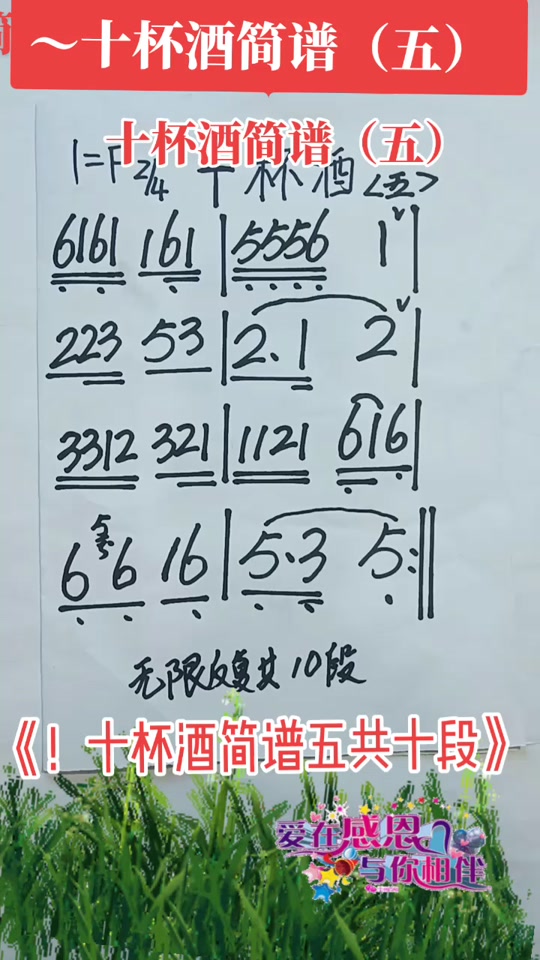 ～十杯酒简谱（五）
十杯酒简谱（五）
1=F 2/4 十杯酒<五>
6161 161 | 5556 1 |
223 53 | 2. 1 2 |
3312 321 | 1121 616 |
6 6 16 | 5. 3 5 :||
无限反复共10段
《！十杯酒简谱五共十段》
爱在感恩
与你相伴